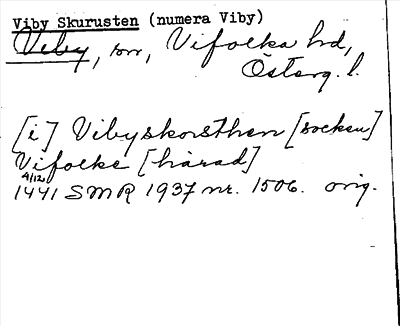 Viby Skurusten (numera Viby)
Viby, sn, Vifolka hd,
Österg. l.
[i] Vibyskorsthen [socken]
Vifolke [härad]
4/12
1441 SMR 1937 nr. 1506. orig.